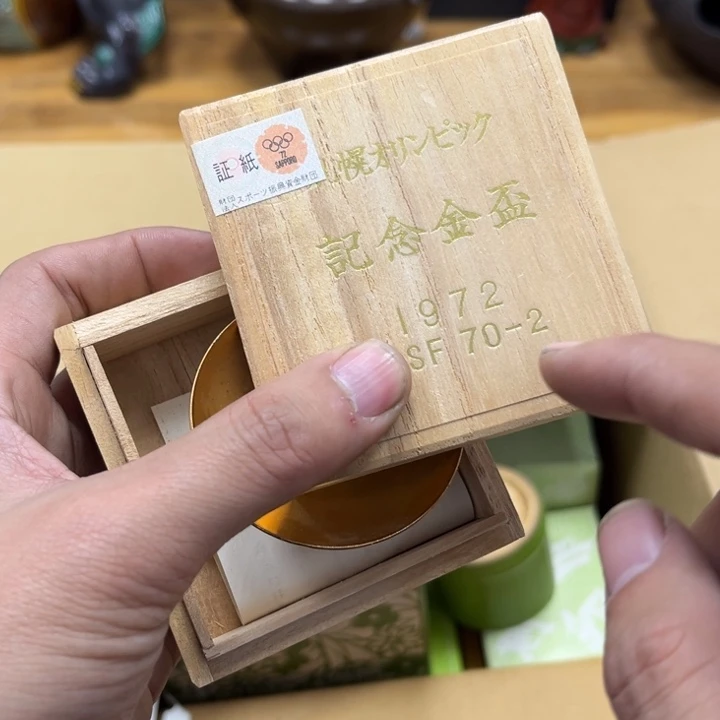 証 紙
'72
SAPPORO
財団
法人スポーツ振興資金財団
幌オリンピック
記念金盃
1972
SF 70-2